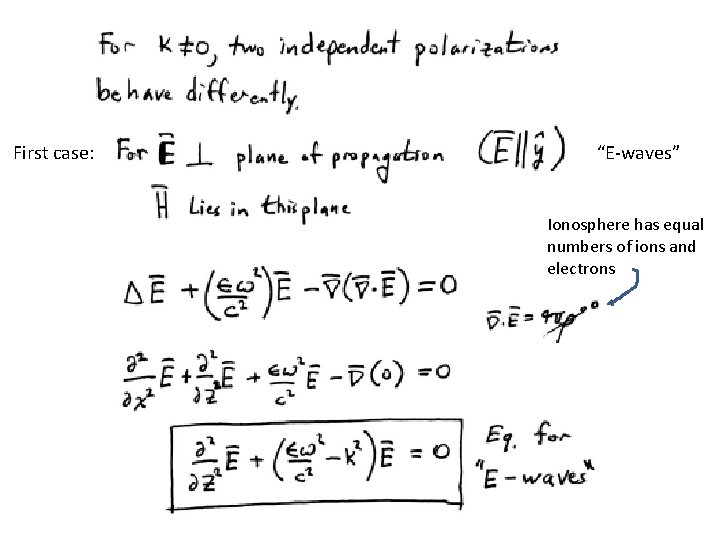 For K≠0, two independent polarizations
behave differently.
First case: For E̅ ⊥ plane of propagation (E̅∥ŷ) “E-waves”
H̅ Lies in this plane
Ionosphere has equal
numbers of ions and
electrons
ΔE̅ + (ϵω²/c²)E̅ − ∇̅(∇̅·E̅) = 0
∇̅·E̅ = 4πρ → 0
∂²/∂x² E̅ + ∂²/∂z² E̅ + ϵω²/c² E̅ − ∇̅(0) = 0
∂²/∂z² E̅ + (ϵω²/c² − K²)E̅ = 0
Eq. for
"E-waves"